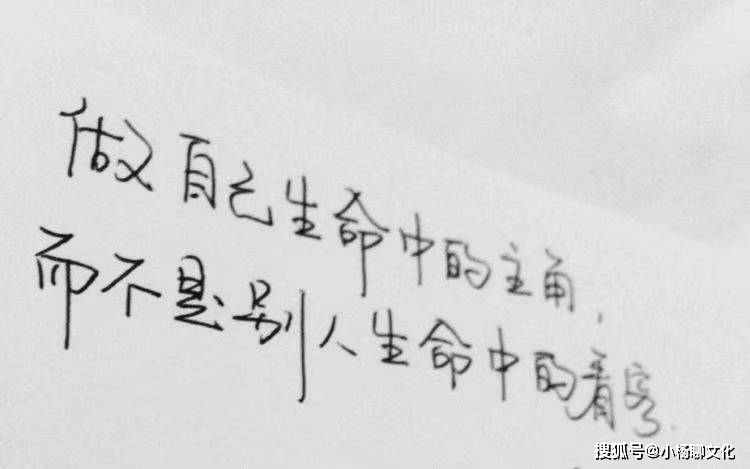 做自己生命中的主角,
而不是别人生命中的看客.
搜狐号@小杨聊文化